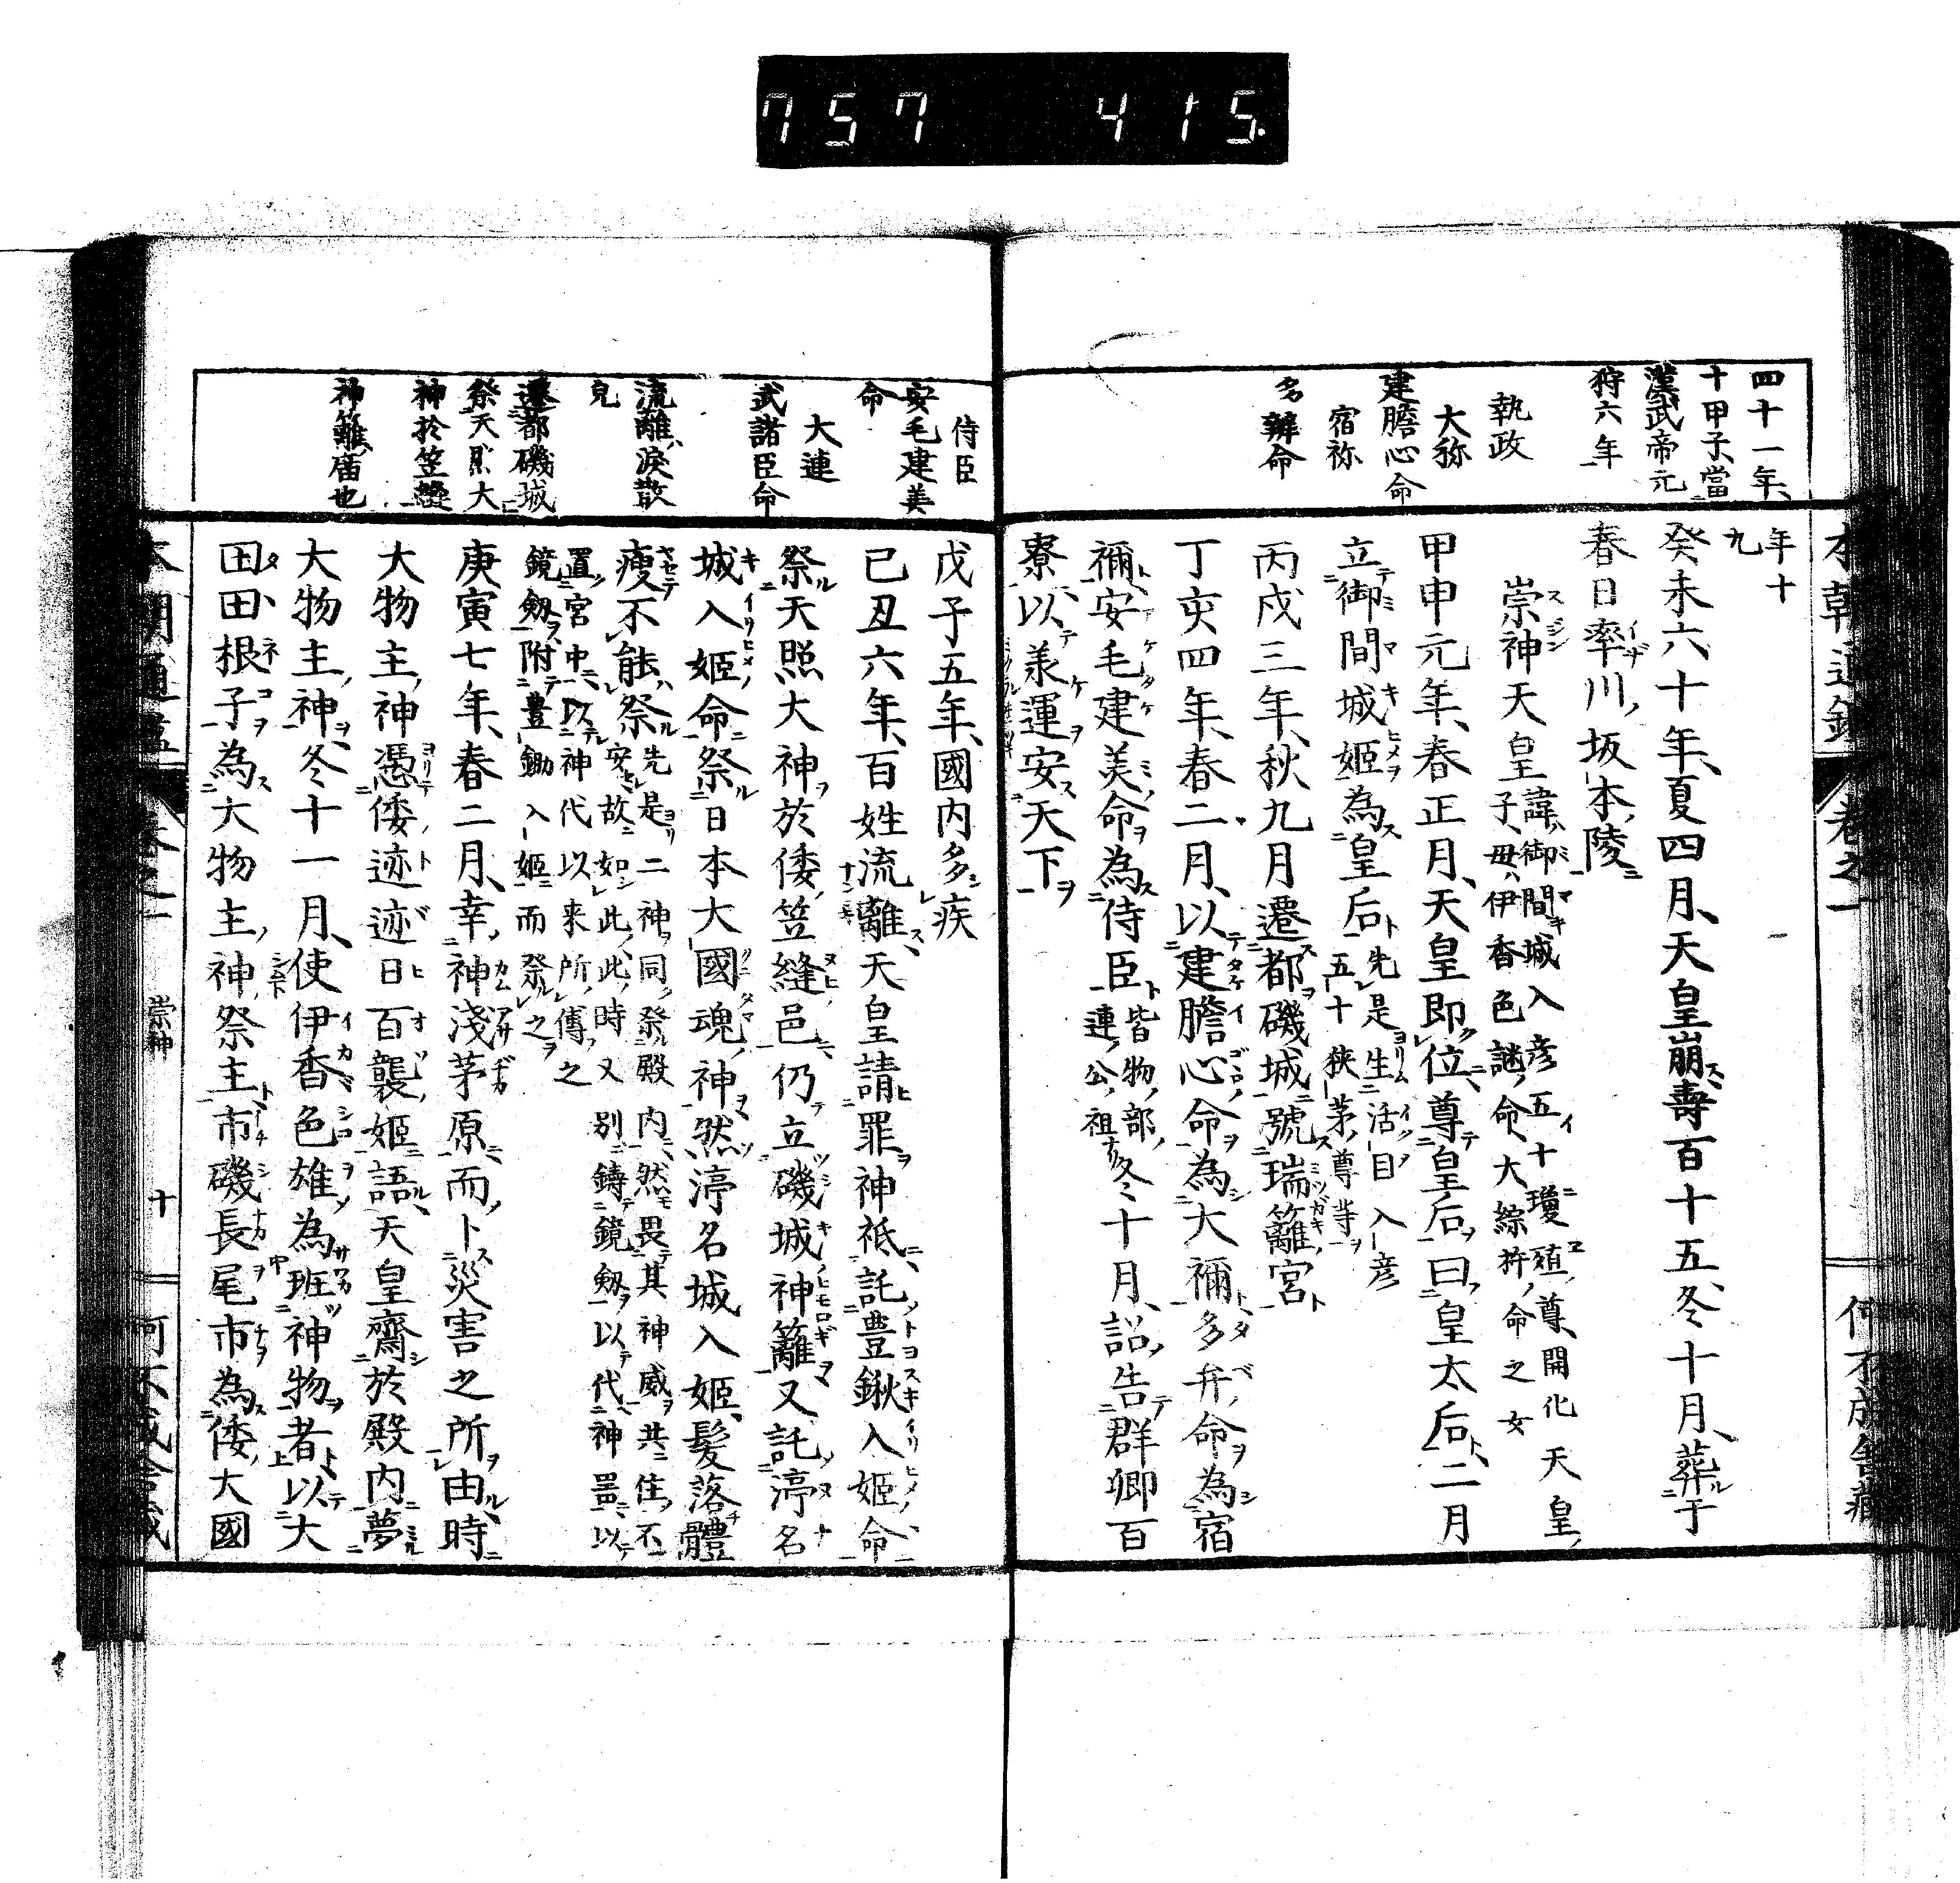 757 415.
本朝通鑑 卷之一
何不成舎藏
四十一年、
十甲子、當
漢武帝元
狩六年
執政
大祢
建膽心命
宿祢
多辨命
年十
九
癸未六十年、夏四月、天皇崩壽百十五、冬十月、葬于
春日率川坂本陵
崇神天皇諱御間城入彦五十瓊殖尊、開化天皇
子、母伊香色謎命、大綜杵命之女
甲申元年、春正月、天皇即位、尊皇后曰皇太后、二月
立御間城姫為皇后先是生活目入彦
五十狹茅尊等
丙戌三年、秋九月遷都磯城、號瑞籬宮
丁亥四年、春二月、以建膽心命為大禰多弁命為宿
禰安毛建美命為侍臣皆物部
連公祖冬十月、詔告群卿百
寮以羕運安天下
侍臣
安毛建美
命
大連
武諸臣命
流離、淚散
皃
遷都磯城
祭天照大
神於笠縫
神籬、庿也
戊子五年、國内多疾
己丑六年、百姓流離、天皇請罪神祇、託豊鍬入姫命
祭天照大神於倭笠縫邑、仍立磯城神籬又託渟名
城入姫命祭日本大國魂神然渟名城入姫髪落體
瘦不能祭先是二神同祭殿内、然畏其神威共住不
安、故如此、此時又別鑄鏡劔以代神噐、以
置宮中、以神代以来所傳之
鏡劔附豊鋤入姫而祭之
庚寅七年、春二月、幸神淺茅原、而卜災害之所由、時
大物主神憑倭迹迹日百襲姫語天皇齋於殿内夢
大物主神、冬十一月、使伊香色雄為班神物者以大
田田根子為大物主神祭主市磯長尾市為倭大國
本朝通鑑 卷之一 崇神 十 何不成舎藏